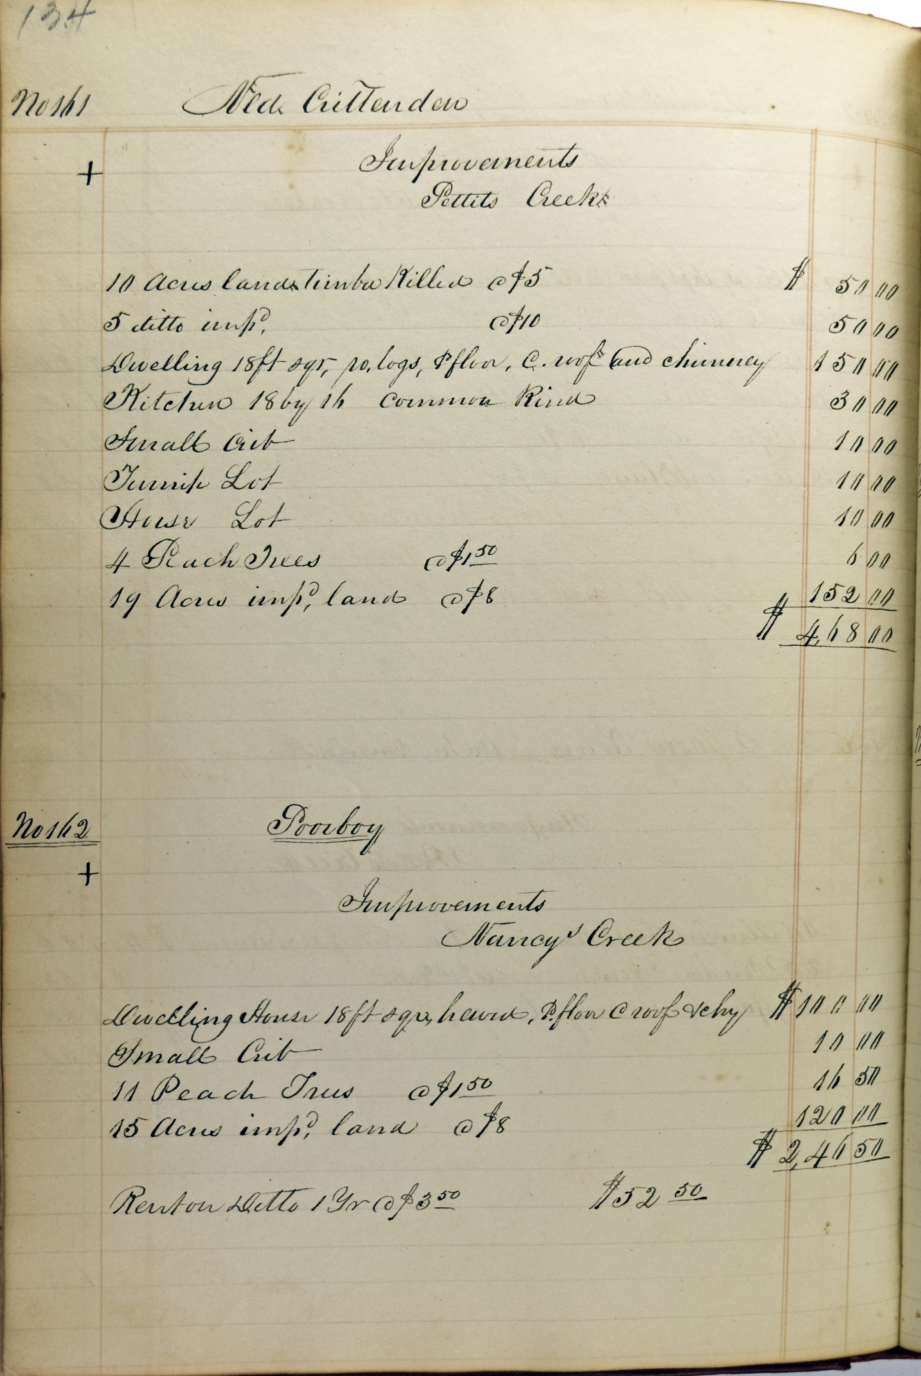 134
No 161 Ned Crittenden
+ Improvements
Pettits Creek
10 Acres land & timber Killed @ $5 $ 50 00
5 ditto impd, @ $10 50 00
Dwelling 18 ft sqr, ro, logs, P floor, C. roof and chimney 150 00
Kitchen 18 by 16 common Kind 30 00
Small Crib 10 00
Turnip Lot 10 00
House Lot 10 00
4 Peach Trees @ $1 50 6 00
19 Acres impd, land @ $8 152 00
$ 4,68 00
No 162 Poorboy
+
Improvements
Nancy's Creek
Dwelling House 18 ft sqr, hewed, P. floor C roof & chy $ 100 00
Small Crib 10 00
11 Peach Trees @ $1 50 16 50
15 Acres impd, land @ $8 120 00
$ 2,46 50
Rent on Ditto 1 Yr @ $3 50 $52 50